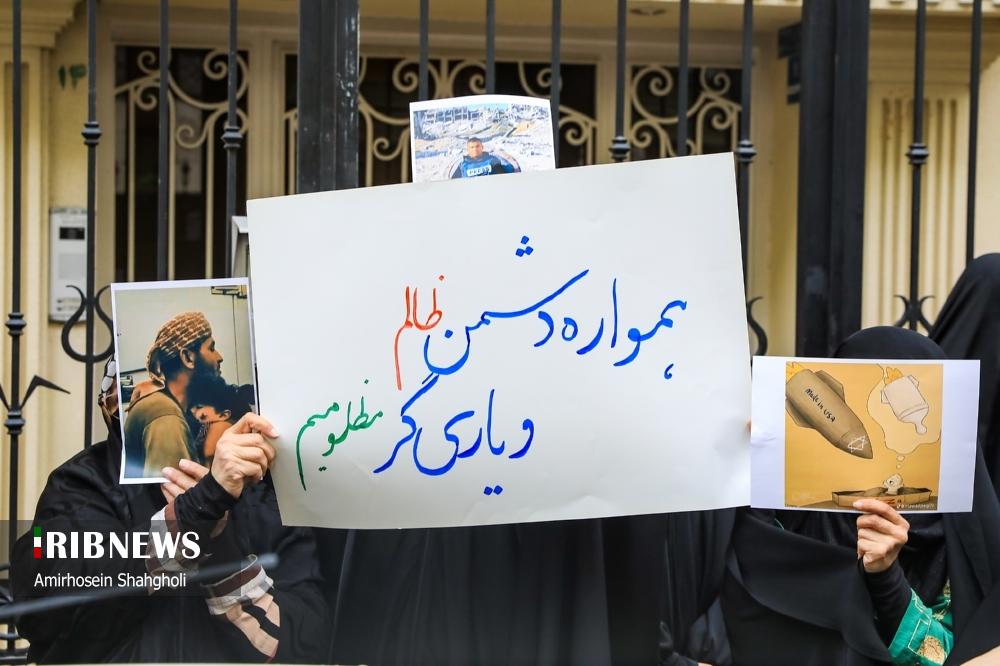 PRESS
همواره دشمن ظالم
و یاری گر مظلومیم
Made in USA
IRIBNEWS
Amirhosein Shahgholi